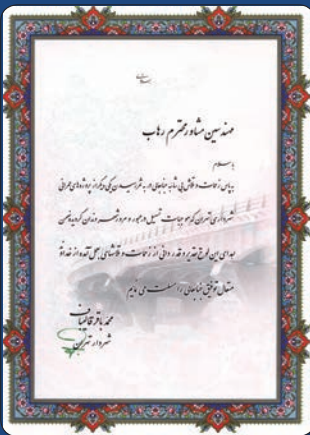 مهندسین مشاور محترم رهاب
با سلام
بپاس زحمات و تلاش بی شائبه جنابعالی در به ثمر رسیدن یکی دیگر از پروژه‌های عمرانی
شهرداری تهران که موجبات تسهیل در عبور و مرور شهروندان گردیده ضمن
اهدای این لوح تقدیر و قدردانی از زحمات و تلاشهای بعمل آمده از خداوند
متعال توفیق جنابعالی را مسئلت می نمایم
محمد باقر قالیباف
شهردار تهران